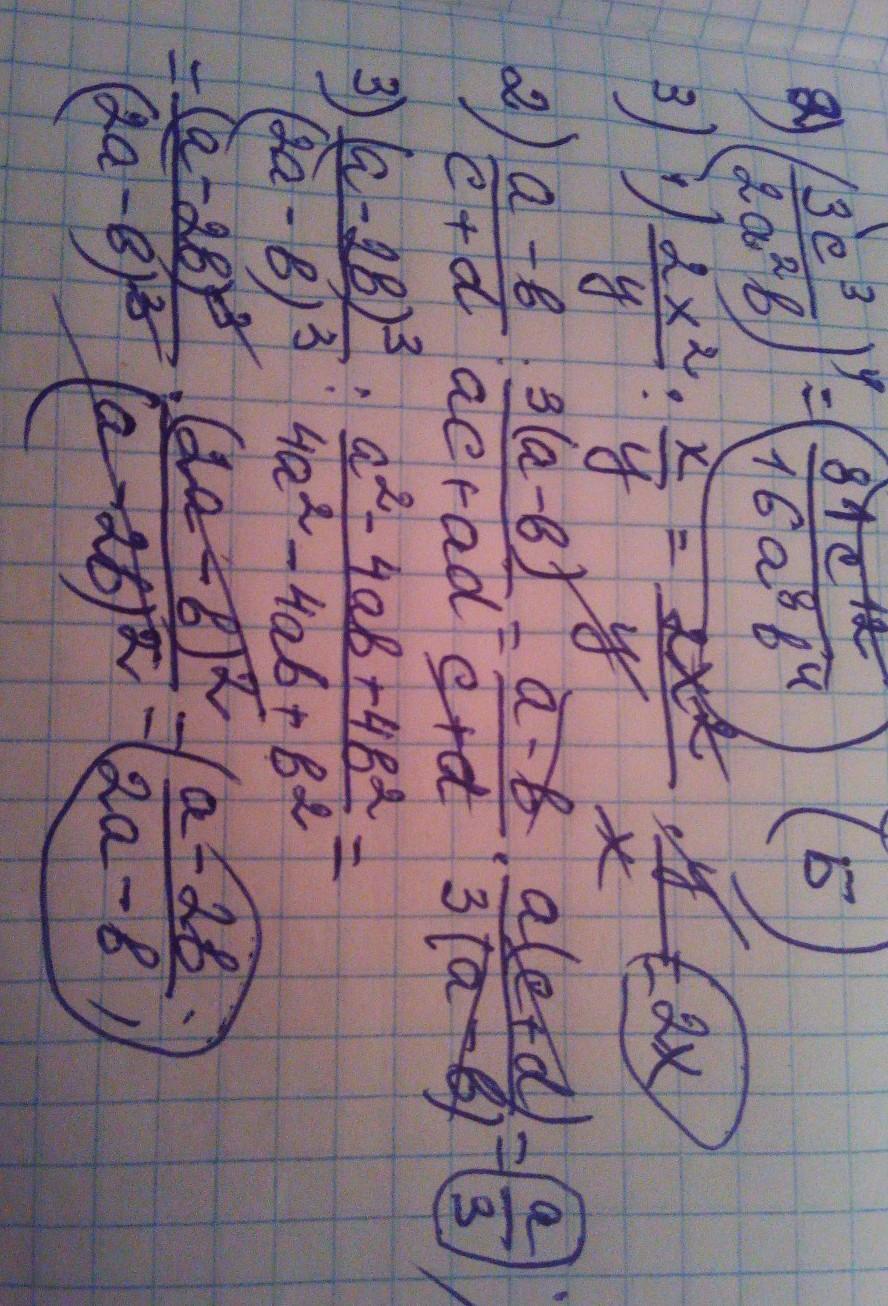 2) (3c³/2a²b)⁴ = 81c¹²/16a⁸b⁴ (5
3) 1) 2x²/y : x/y = 2x²/y · y/x = 2x
2) a-b/c+d : 3(a-b)/ac+ad = a-b/c+d · a(c+d)/3(a-b) = a/3;
3) (a-2b)³/(2a-b)³ : a²-4ab+4b²/4a²-4ab+b² =
= (a-2b)³/(2a-b)³ · (2a-b)²/(a-2b)² = a-2b/2a-b;